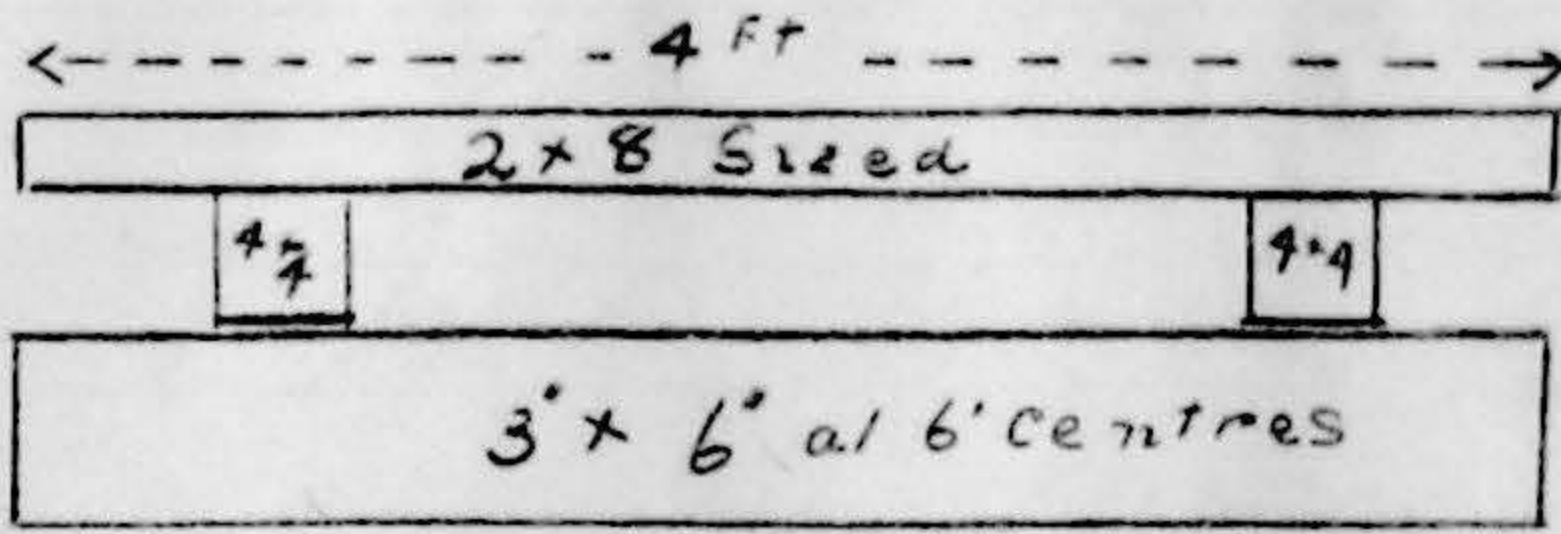 4 Ft
2 x 8 Sized
4 x 4 4 x 4
3" x 6" at 6' centres